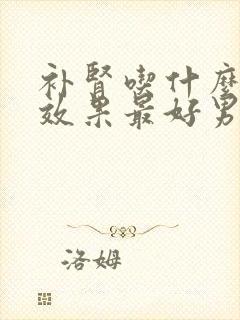 补肾喫什麼
效果最好男
洛姆